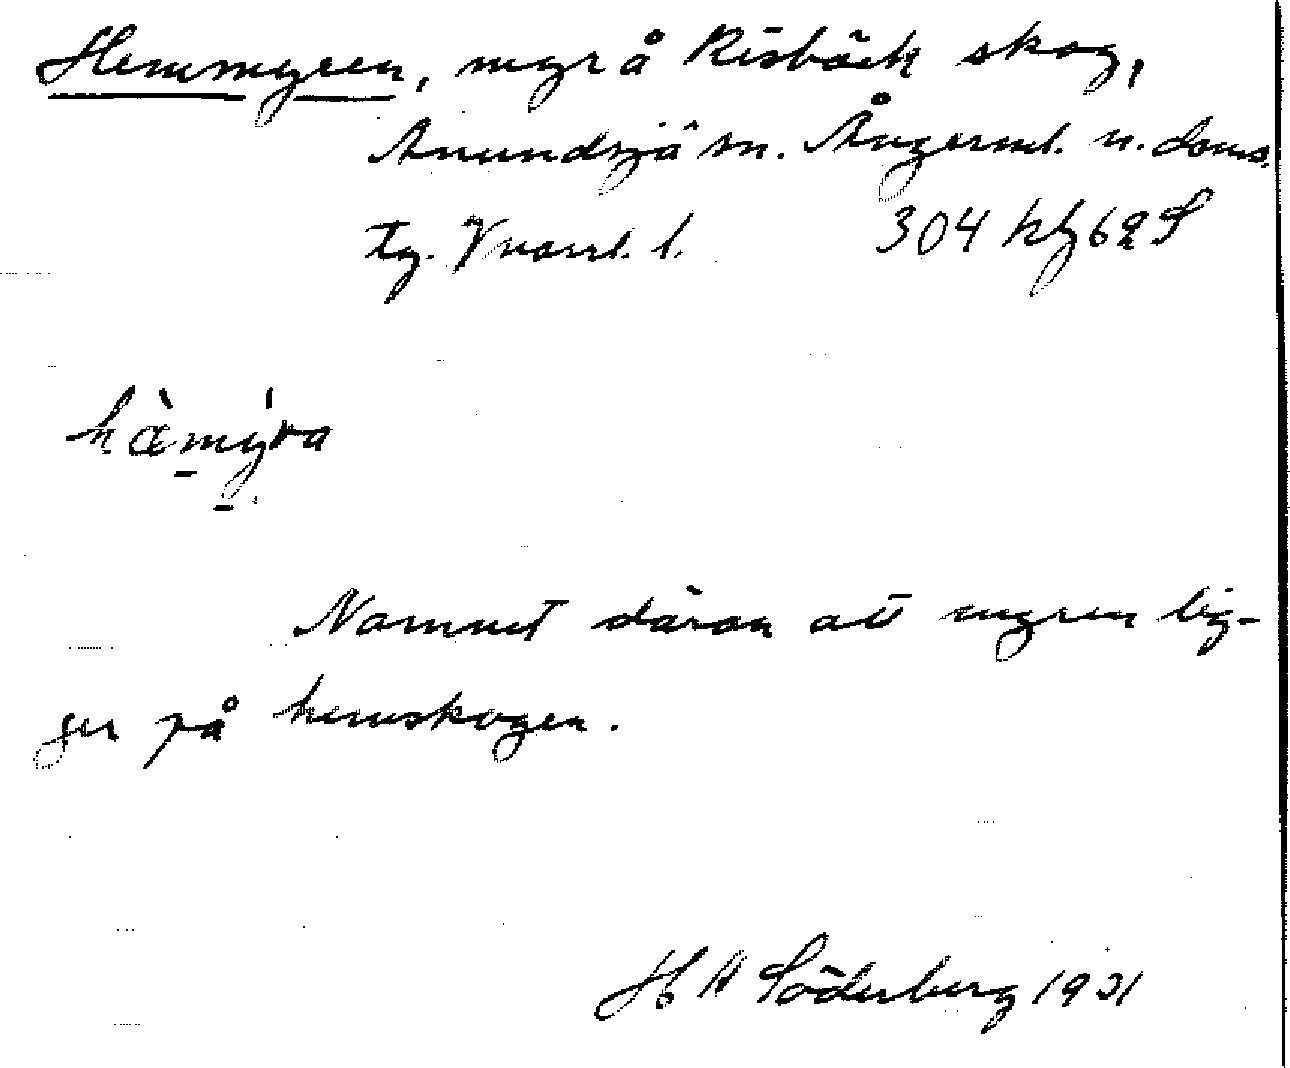 Hemmyren, myr å Risbäck skog,
Anundsjö sn. Ångerml. n. doms.
tg. Vnorrl. l. 304 kbf 62 S
hæ̀mýra
Namnet därav att myren lig-
ger på hemskogen.
H A Söderberg 1931